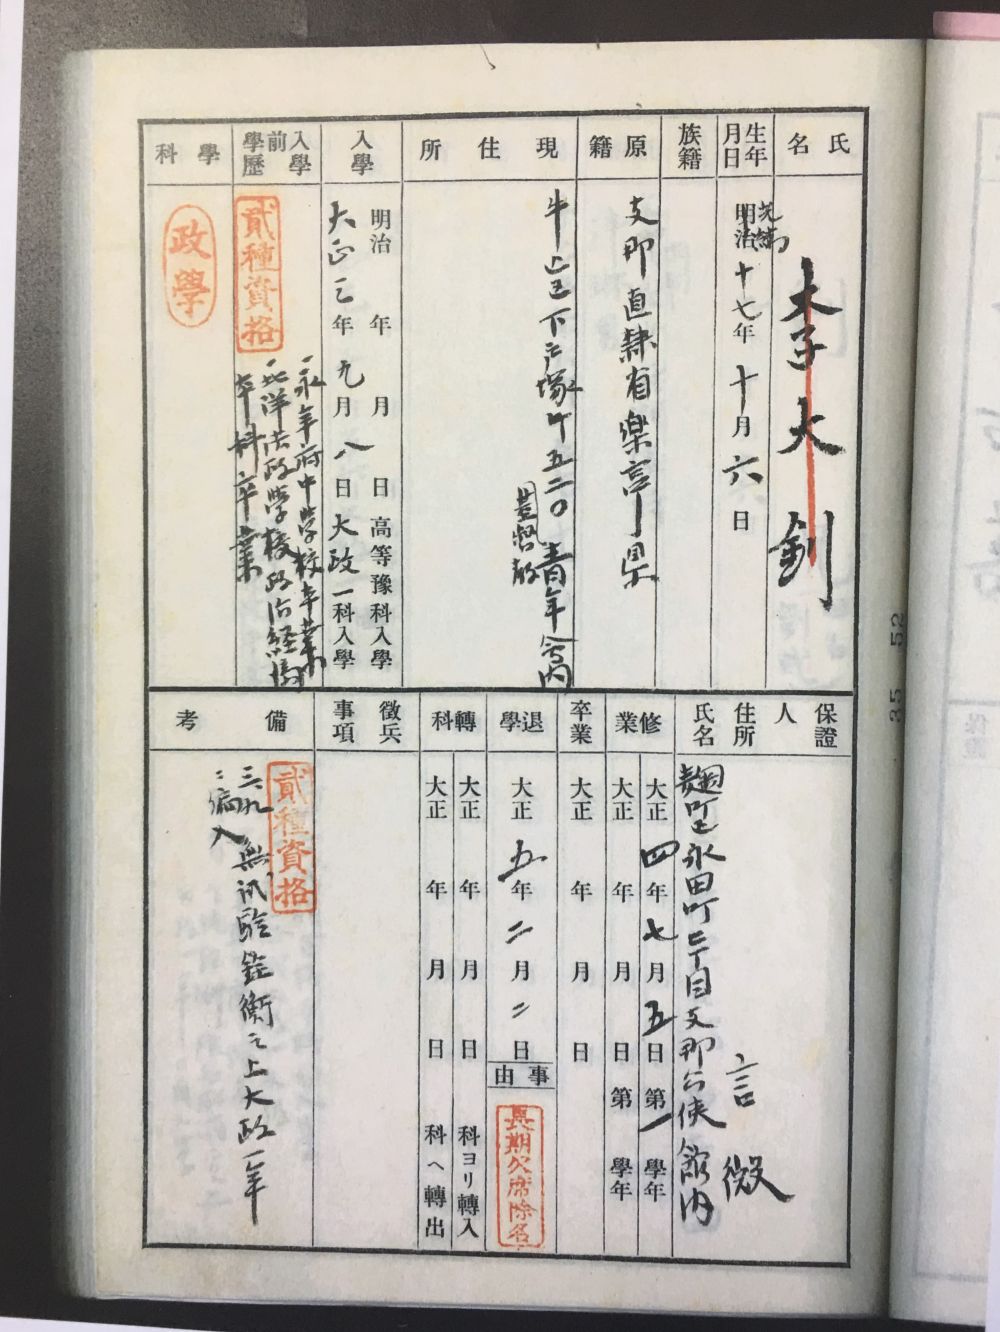 氏名
李大釗
生年月日
光緒
明治十七年十月六日
族籍
原籍
支那直隷省樂亭県
現住所
牛込区下戸塚町五二〇基督教青年会内
入學
明治 年 月 日高等豫科入學
大正三年九月八日大政一科入學
入學前學歷
貳種資格
永年府中学校卒業
北洋法政学校政治経済
本科卒業
學科
政學
保證人住所氏名
麹町区永田町二丁目支那公使館内
言微
修業
大正四年七月五日第一學年
大正 年 月 日第 學年
卒業
大正 年 月 日
退學
大正五年二月二日
事由
長期欠席除名
轉科
大正 年 月 日 科ヨリ轉入
大正 年 月 日 科ヘ轉出
徵兵事項
備考
貳種資格
三、九、無試驗銓衡之上大政一年
ニ編入
35 52
保證